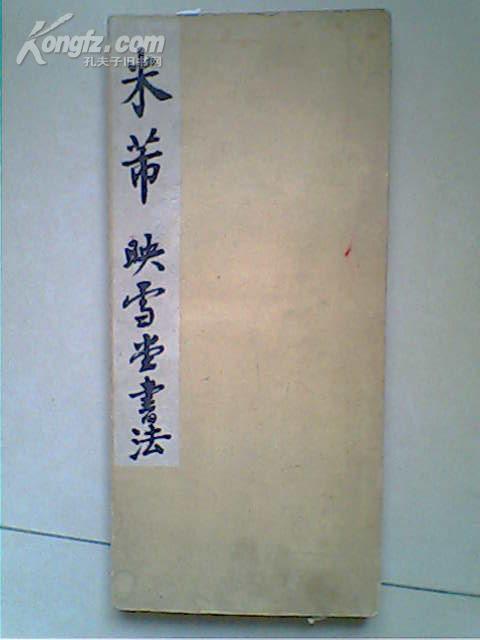 Kongfz.com
孔夫子旧书网
米芾 映雪堂書法